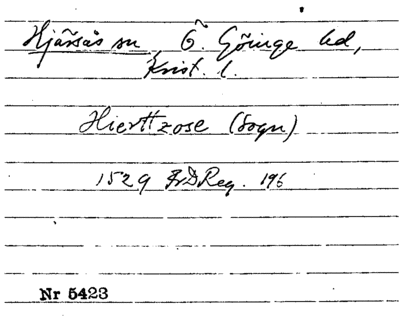 Hjärsås sn, Ö. Göinge hd,
Krist. l.
Hierttzose (Sogn)
1529 FrDReg. 196
Nr 5423